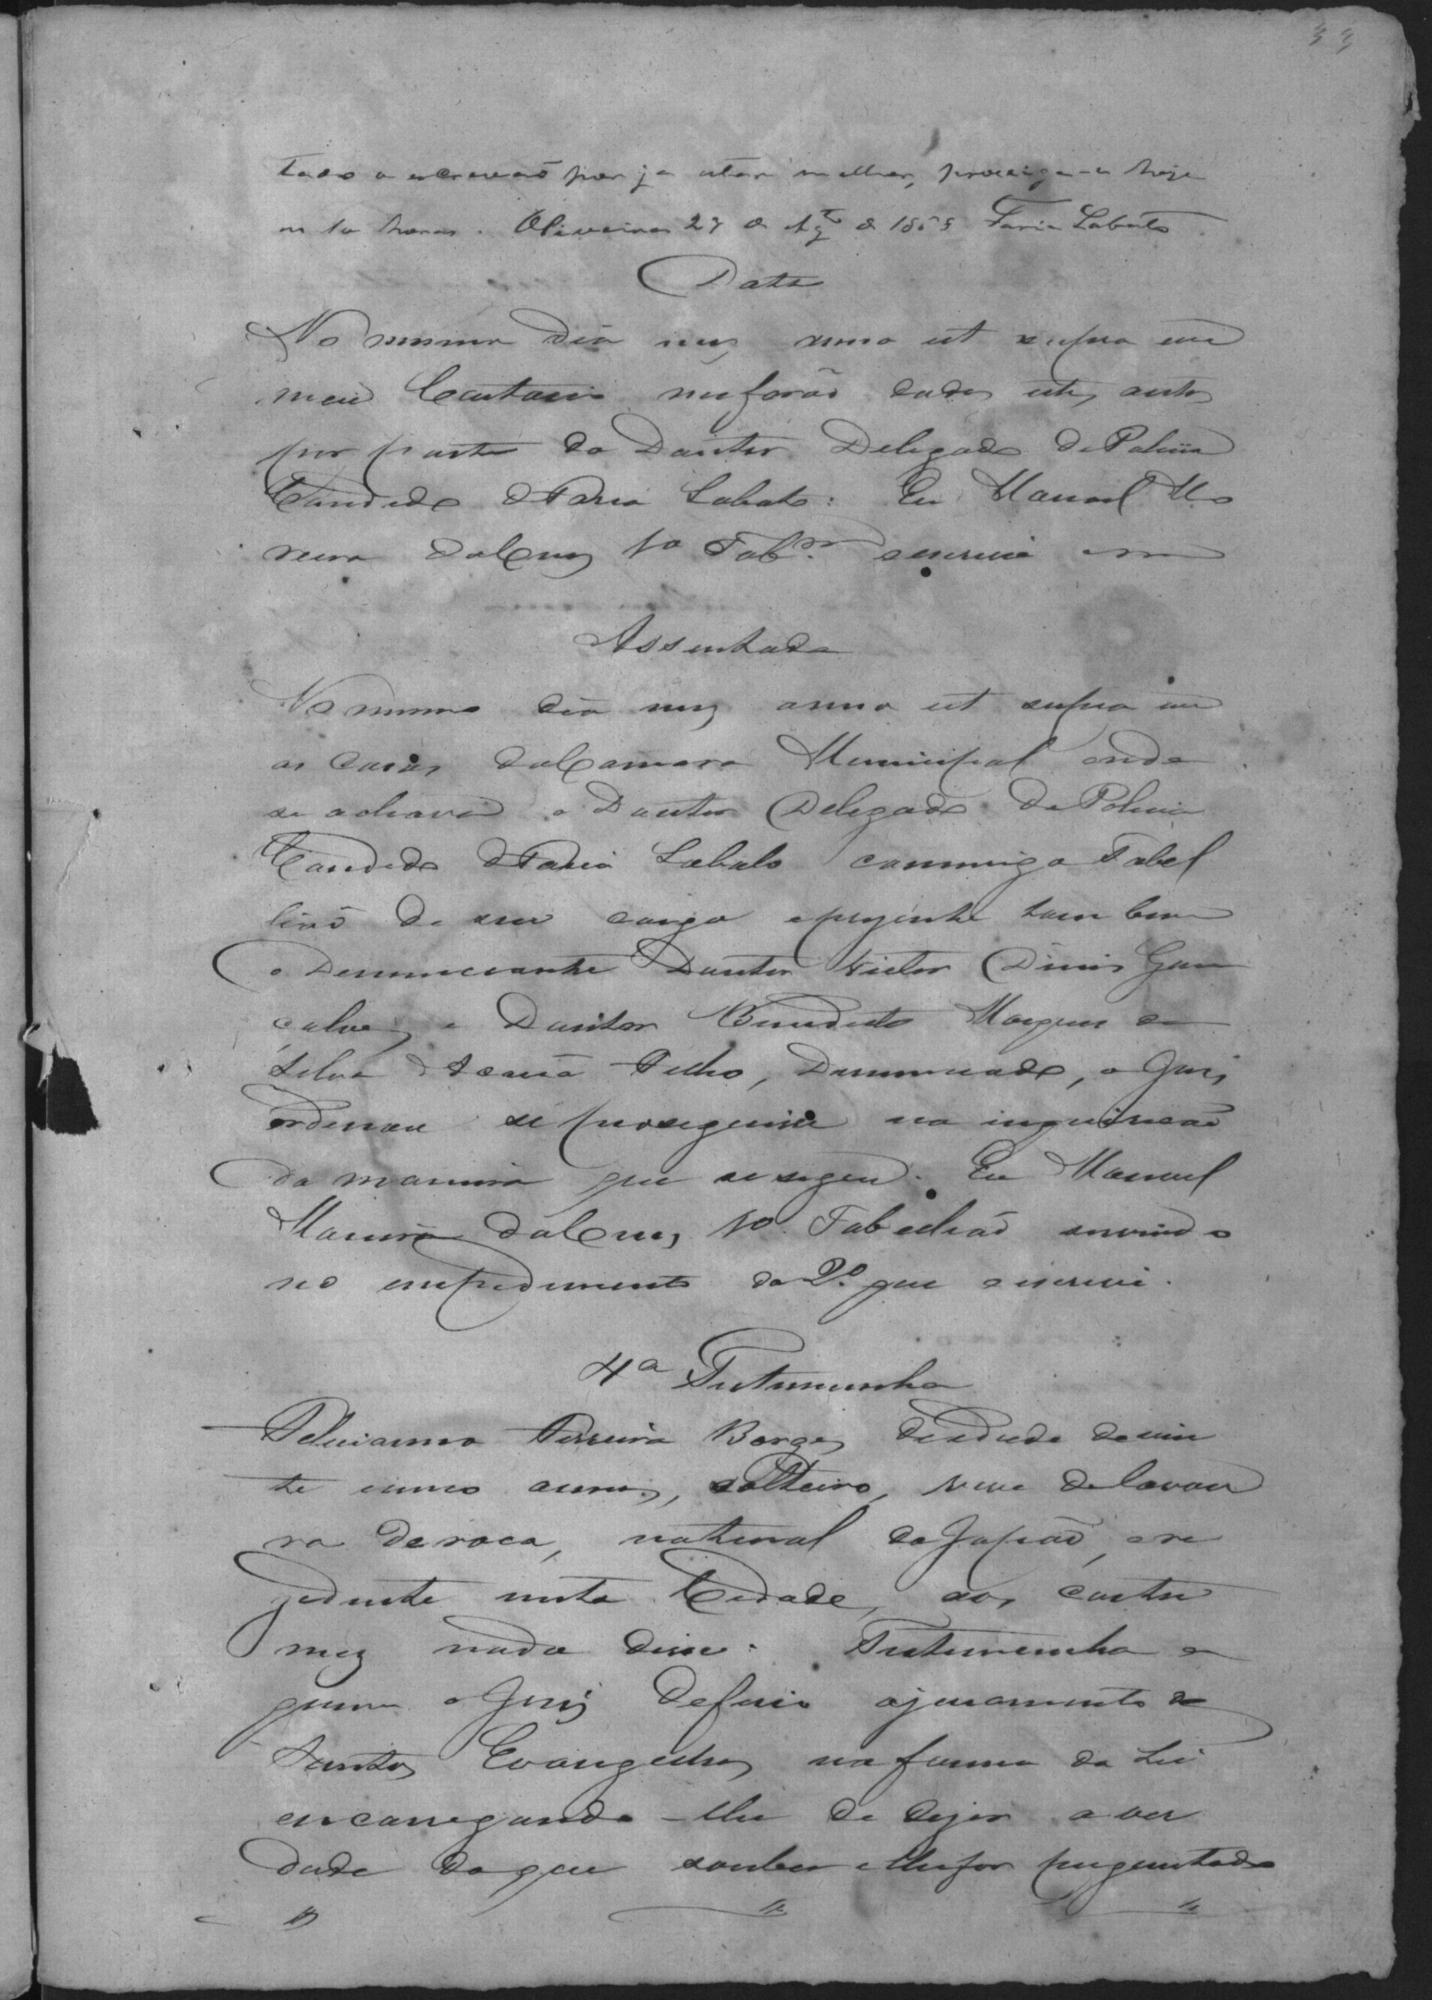 33
tado o escrivão por ja estar melhor, prosiga-se hoje
as 10 horas. Oliveira 27 de Agto de 1865 Faria Lobato
Data
No mesmo dia mez anno ut supra em
meu Cartorio me forão dados estes autos
por parte do Doutor Delegado de Policia
Candido de Faria Lobato: Eu Manoel Mo
reira da Cruz 1o Tabam escrevi
Assentada
No mesmo dia mez anno ut supra em
as casas da Camara Municipal onde
se achava o Doutor Delegado de Policia
Candido de Faria Lobato commigo Tabel
lião de seu cargo e prezente tambem
o Denunciante Doutor Victor Diniz Gon
çalves, e Doutor Benedicto Marques da
Silva Acauã Filho, Denunciado, o Juiz
ordenou se proseguisse na inquirição
da maneira que se segue. Eu Manoel
Moreira da Cruz 1o Tabellião servindo
no empedimento do 2o que escrevi.
4a Testemunha
Feliciano Pereira Borges, de idade de vin
te cinco annos, solteiro, vive de lavou
ra de roca, natural do Japão, e re
zidente nesta Cidade, aos costu
mes nada disse. Testemunha a
quem o Juiz defirio o juramento dos
Santos Evangelhos na forma da Lei
encarregando-lhe de dizer a ver
dade do que souber e lhe for preguntado